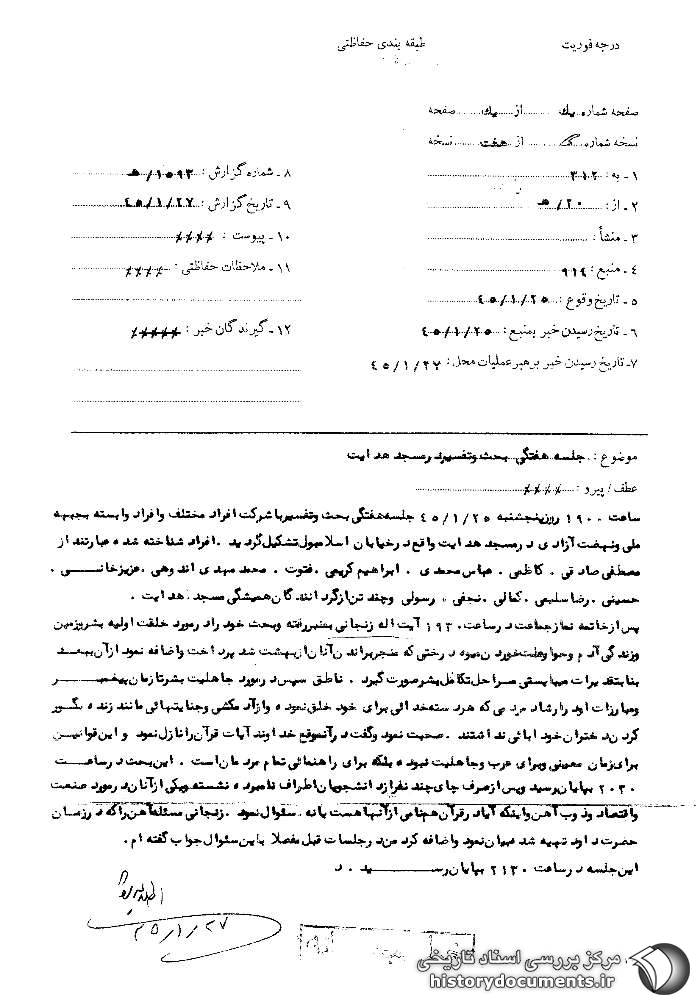 درجه فوریت
طبقه بندی حفاظتی
صفحه شماره یك از یك صفحه
نسخه شماره از هفت نسخه
۱ ـ به : ۳۱۲
۲ ـ از : ۲۰ / ه‍
۳ ـ منشأ :
۴ ـ منبع : ۹۱۴
۵ ـ تاریخ وقوع : ۴۵/۱/۲۵
۶ ـ تاریخ رسیدن خبر بمنبع : ۴۵/۱/۲۵
۷ـ تاریخ رسیدن خبر برهبر عملیات محل : ۴۵/۱/۲۷
۸ ـ شماره گزارش : ۱۵۹۳/ه‍
۹ ـ تاریخ گزارش : ۴۵/۱/۲۷
۱۰ ـ پیوست : ××××
۱۱ ـ ملاحظات حفاظتی : ××××
۱۲ ـ گیرندگان خبر : ×××××
موضوع : جلسه هفتگی بحث وتفسیر در مسجد هدایت
عطف / پیرو : ××××
ساعت ۱۹۰۰ روز پنجشنبه ۴۵/۱/۲۵ جلسه هفتگی بحث وتفسیر با شرکت افراد مختلف وافراد وابسته بجبهه
ملی ونهضت آزادی در مسجد هدایت واقع در خیابان اسلامبول تشکیل گردید . افراد شناخته شده عبارتند از
مصطفی صادقی . کاظمی . عباس محمدی . ابراهیم کریمی . فتوت . محمد مهدی اندوهی . عزیزخانی .
حسینی . رضا سلیمی . کمالی . نجفی . رسولی وچند تن از گردانندگان همیشگی مسجد هدایت .
پس از خاتمه نماز جماعت در ساعت ۱۹۳۰ آیت اله زنجانی بمنبر رفته وبحث خود را در مورد خلقت اولیه بشر وزمین
وزندگی آدم وحوا وعلت خوردن میوه درختی که منجر براندن آنان از بهشت شد پرداخت واضافه نمود از آن ببعد
بنا بتقدیرات میبایستی مراحل تکامل بشر صورت گیرد . ناطق سپس در مورد جاهلیت بشر تا زمان پیغمبر
ومبارزات او در ارشاد مردمی که هر دسته خدائی برای خود خلق نموده واز آدمکشی وجنایتهائی مانند زنده بگور
کردن دختران خود ابائی نداشتند . صحبت نمود وگفت در آنموقع خداوند آیات قرآن را نازل نمود واین قوانین
برای زمان معینی وبرای عرب وجاهلیت نبوده بلکه برای راهنمائی تمام مردمان است . این بحث در ساعت
۲۰۳۰ بپایان رسید وپس از صرف چای چند نفر از دانشجویان اطراف نامبرده نشسته ویکی از آنان در مورد صنعت
واقتصاد وذوب آهن واینکه آیا در قرآن هم نامی از آنها هست یا نه . سئوال نمود . زنجانی مسئله آهن را که در زمان
حضرت داود تهیه شد عنوان نمود واضافه کرد من در جلسات قبل مفصلا باین سئوال جواب گفته ام .
این جلسه در ساعت ۲۱۳۰ بپایان رسید . د
۴۵/۱/۲۷
مرکز بررسی اسناد تاریخی
historydocuments.ir